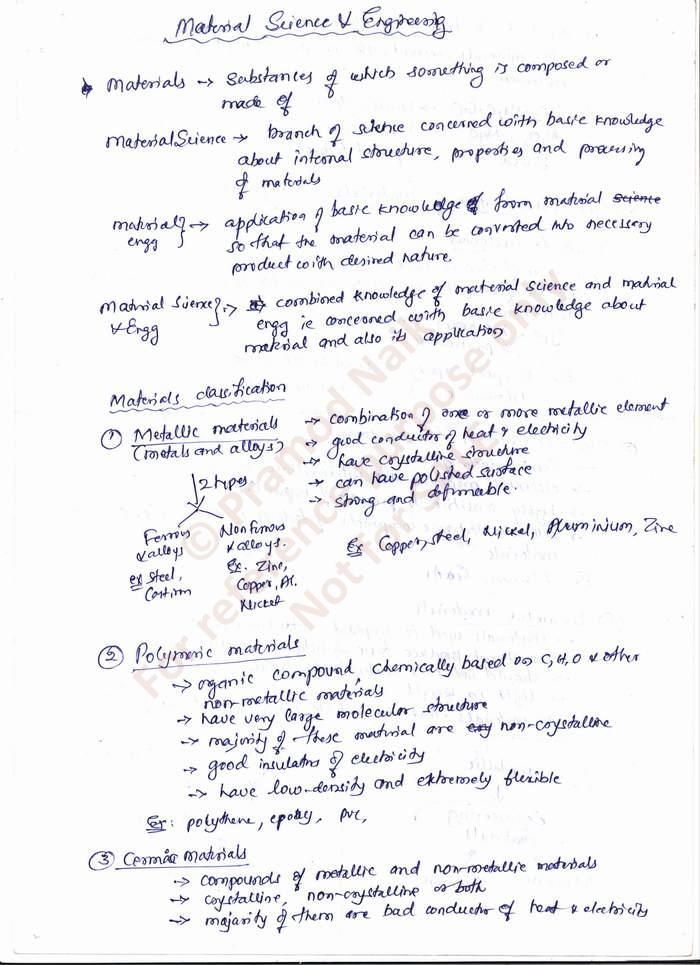 Material Science & Engineering
Materials → Substances of which something is composed or
made of
Material Science → branch of science concerned with basic knowledge
about internal structure, properties and processing
of materials
material
engg } → application of basic knowledge of from material science
so that the material can be converted into necessary
product with desired nature.
Material Science
& Engg } → combined knowledge of material science and material
engg ie concerned with basic knowledge about
material and also its application
Materials classification
① Metallic materials
(metals and alloys)
→ combination of one or more metallic element
→ good conductor of heat & electricity
→ have crystalline structure
→ can have polished surface
→ strong and deformable.
Ex Copper, steel, Nickel, Aluminium, Zinc
2 types
Ferrous
& alloys
ex steel,
Cast iron
Non Ferrous
& alloys.
Ex. Zinc,
Copper, Al.
Nickel
② Polymeric materials
→ organic compound, chemically based on C, H, O & other
non-metallic materials
→ have very large molecular structure
→ majority of these material are non-crystalline
→ good insulators of electricity
→ have low-density and extremely flexible
Ex: polythene, epoxy, PVC,
③ Cermic materials
→ compounds of metallic and non-metallic materials
→ crystalline, non-crystalline or both
→ majority of them are bad conductor of heat & electricity
© Pramod Naik
For reference purpose only
Not for